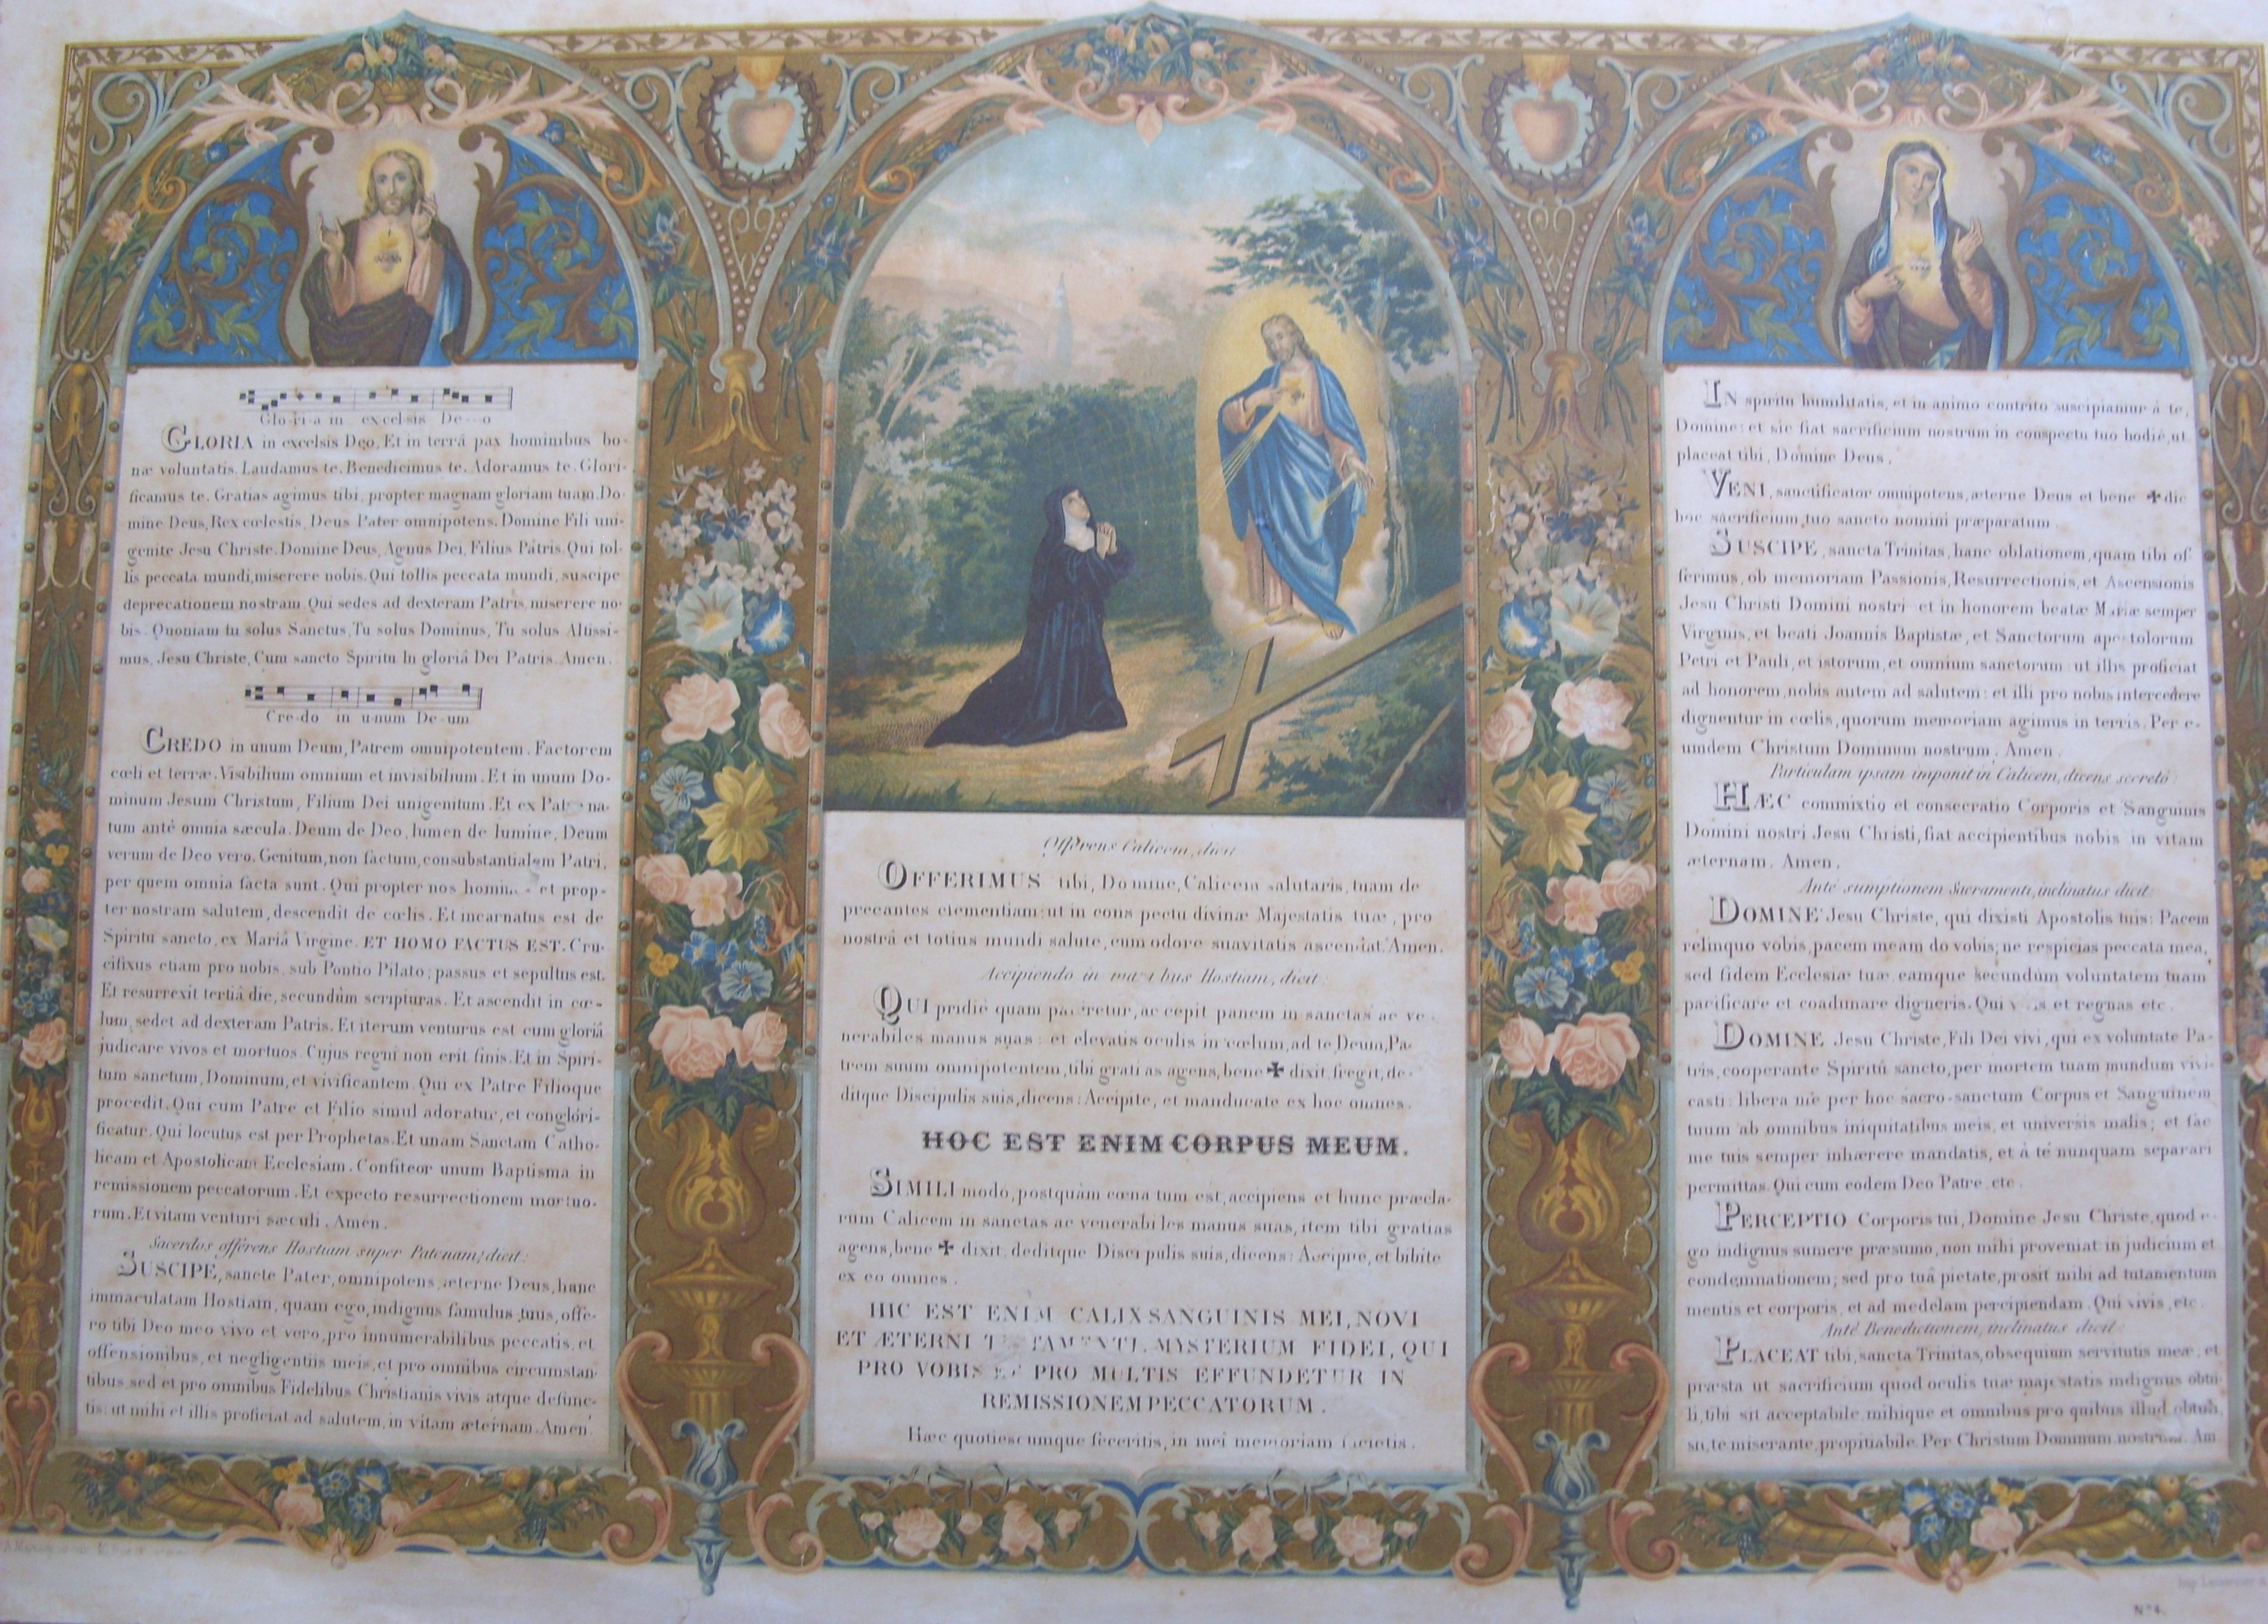 Glo-ri-a in excelsis De---o
GLORIA in excelsis Deo, Et in terrâ pax hominibus bo-
næ voluntatis. Laudamus te. Benedicimus te. Adoramus te. Glori-
ficamus te. Gratias agimus tibi, propter magnam gloriam tuam. Do-
mine Deus, Rex cœlestis, Deus Pater omnipotens. Domine Fili uni-
genite Jesu Christe. Domine Deus, Agnus Dei, Filius Pátris. Qui tol-
lis peccata mundi, miserere nobis. Qui tollis peccata mundi, suscipe
deprecationem nostram. Qui sedes ad dexteram Patris, miserere no-
bis. Quoniam tu solus Sanctus, Tu solus Dominus, Tu solus Altissi-
mus, Jesu Christe, Cum sancto Spiritu In gloriâ Dei Patris. Amen.
Cre-do in u-num De-um
CREDO in unum Deum, Patrem omnipotentem. Factorem
cœli et terræ. Visibilium omnium et invisibilium. Et in unum Do-
minum Jesum Christum, Filium Dei unigenitum. Et ex na-
tum antè omnia sæcula. Deum de Deo, lumen de lumine, Deum
verum de Deo vero. Genitum, non factum, consubstantialem Patri,
per quem omnia facta sunt. Qui propter nos et prop-
ter nostram salutem, descendit de cœlis. Et incarnatus est de
Spiritu sancto, ex Mariâ Virgine. ET HOMO FACTUS EST. Cru-
cifixus etiam pro nobis, sub Pontio Pilato; passus et sepultus est.
Et resurrexit tertiâ die, secundùm scripturas. Et ascendit in cœ-
lum, sedet ad dexteram Patris. Et iterum venturus est cum gloriâ
judicare vivos et mortuos. Cujus regni non erit finis. Et in Spiri-
tum sanctum, Dominum, et vivificantem. Qui ex Patre Filioque
procedit. Qui cum Patre et Filio simul adoratur, et conglóri-
ficatur. Qui locutus est per Prophetas. Et unam Sanctam Catho-
licam et Apostolicam Ecclesiam. Confiteor unum Baptisma in
remissionem peccatorum. Et expecto resurrectionem mortuo-
rum. Et vitam venturi sæculi. Amen.
Sacerdos offerens Hostiam super Patenam, dicit:
SUSCIPE, sancte Pater, omnipotens, æterne Deus, hanc
immaculatam Hostiam, quam ego, indignus famulus tuus, offe-
ro tibi Deo meo vivo et vero, pro innumerabilibus peccatis, et
offensionibus, et negligentiis meis, et pro omnibus circumstan-
tibus, sed et pro omnibus Fidelibus Christianis vivis atque defunc-
tis: ut mihi et illis proficiat ad salutem, in vitam æternam. Amen.
Offerens Calicem, dicit
OFFERIMUS tibi, Domine, Calicem salutaris, tuam de
precantes clementiam: ut in cons pectu divinæ Majestatis tuæ, pro
nostrâ et totius mundi salute, cum odore suavitatis ascendat. Amen.
Accipiendo in manibus Hostiam, dicit:
QUI pridiè quam pateretur, ac cepit panem in sanctas ac ve-
nerabiles manus suas: et elevatis oculis in cœlum, ad te, Deum, Pa-
trem suum omnipotentem, tibi grati as agens, bene ✠ dixit, fregit, de-
ditque Discipulis suis, dicens: Accipite, et manducate ex hoc omnes.
HOC EST ENIM CORPUS MEUM.
SIMILI modo, postquàm cœna tum est, accipiens et hunc præcla-
rum Calicem in sanctas ac venerabi les manus suas, item tibi gratias
agens, bene ✠ dixit, deditque Disci pulis suis, dicens: Accipite, et bibite
ex eo omnes.
HIC EST ENIM CALIX SANGUINIS MEI, NOVI
ET ÆTERNI MYSTERIUM FIDEI, QUI
PRO VOBIS ET PRO MULTIS EFFUNDETUR IN
REMISSIONEM PECCATORUM.
Hæc quotiescumque feceritis, in meî memoriam facietis.
IN spiritu humilitatis, et in animo contrito suscipiamur à te,
Domine: et sic fiat sacrificium nostrum in conspectu tuo hodiè, ut
placeat tibi, Domine Deus.
VENI, sanctificator omnipotens, æterne Deus et bene ✠ dic
hoc sacrificium, tuo sancto nomini præparatum.
SUSCIPE, sancta Trinitas, hanc oblationem, quam tibi of
ferimus, ob memoriam Passionis, Resurrectionis, et Ascensionis
Jesu Christi Domini nostri et in honorem beatæ Mariæ semper
Virginis, et beati Joannis Baptistæ, et Sanctorum apostolorum
Petri et Pauli, et istorum, et omnium sanctorum ut illis proficiat
ad honorem, nobis autem ad salutem: et illi pro nobis intercedere
dignentur in cœlis, quorum memoriam agimus in terris. Per e-
umdem Christum Dominum nostrum. Amen.
Particulam ipsam imponit in Calicem, dicens secretò:
HÆC commixtio et consecratio Corporis et Sanguinis
Domini nostri Jesu Christi, fiat accipientibus nobis in vitam
æternam. Amen.
Antè sumptionem Sacramenti, inclinatus dicit:
DOMINE Jesu Christe, qui dixisti Apostolis tuis: Pacem
relinquo vobis, pacem meam do vobis; ne respicias peccata mea,
sed fidem Ecclesiæ tuæ eamque secundùm voluntatem tuam
pacificare et coadunare digneris. Qui et regnas etc.
DOMINE Jesu Christe, Fili Dei vivi, qui ex voluntate Pa-
tris, cooperante Spiritû sancto, per mortem tuam mundum vivi-
casti: libera me per hoc sacro-sanctum Corpus et Sanguinem
tuum ab omnibus iniquitatibus meis, et universis malis; et fac
me tuis semper inhærere mandatis, et à te nunquam separari
permittas. Qui cum eodem Deo Patre, etc.
PERCEPTIO Corporis tui, Domine Jesu Christe, quod e-
go indignus sumere præsumo, non mihi proveniat in judicium et
condemnationem; sed pro tuâ pietate, prosit mihi ad tutamentum
mentis et corporis, et ad medelam percipiendam. Qui vivis, etc.
Antè Benedictionem, inclinatus dicit:
PLACEAT tibi, sancta Trinitas, obsequium servitutis meæ, et
præsta ut sacrificium quod oculis tuæ majestatis indignus obtu-
li, tibi sit acceptabile, mihique et omnibus pro quibus illud obtuli,
sit, te miserante, propitiabile. Per Christum Dominum nostrum. Am
N°4.